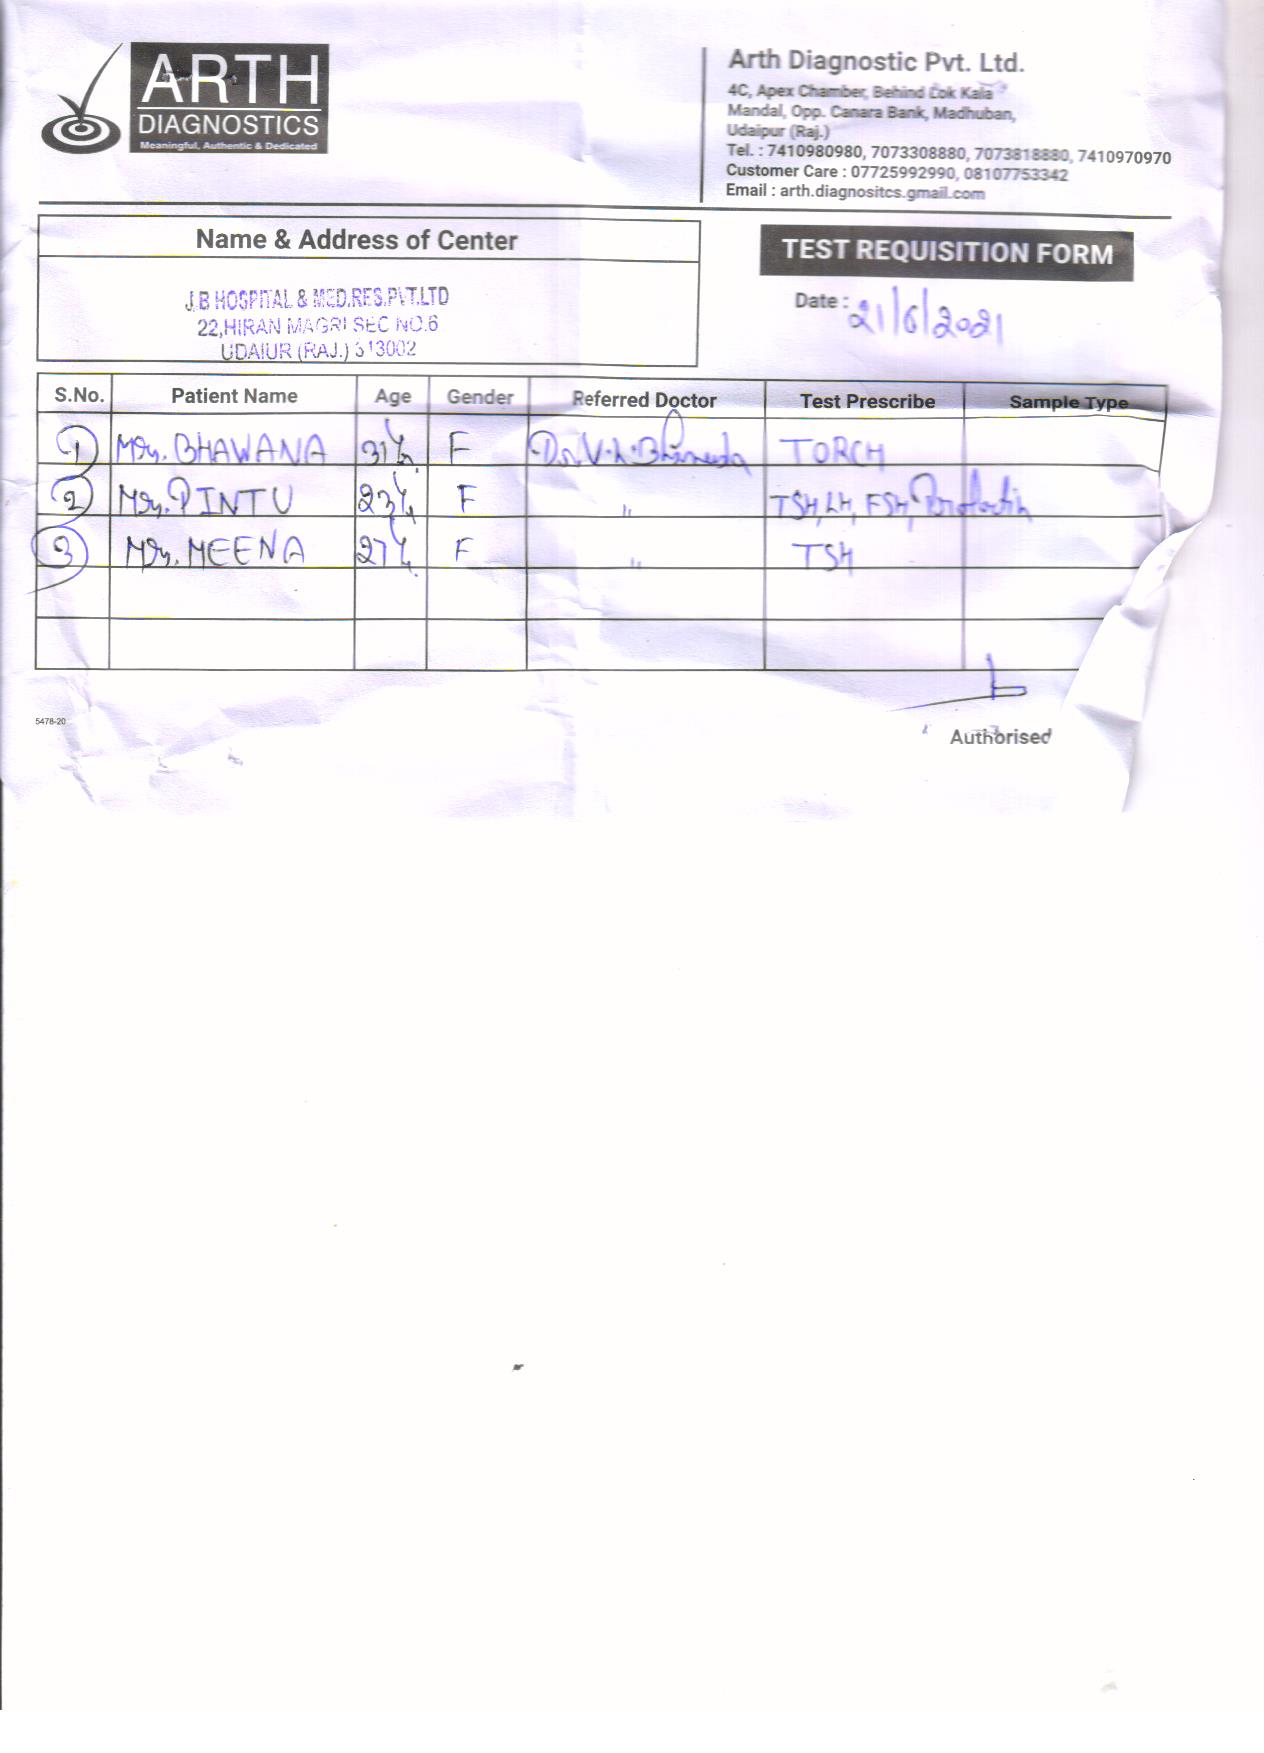 ARTH
DIAGNOSTICS
Meaningful, Authentic & Dedicated
Arth Diagnostic Pvt. Ltd.
4C, Apex Chamber, Behind Lok Kala
Mandal, Opp. Canara Bank, Madhuban,
Udaipur (Raj.)
Tel. : 7410980980, 7073308880, 7073818880, 7410970970
Customer Care : 07725992990, 08107753342
Email : arth.diagnositcs.gmail.com
Name & Address of Center
J.B HOSPITAL & MED.RES.PVT.LTD
22,HIRAN MAGRI SEC NO.6
UDAIUR (RAJ.) 313002
TEST REQUISITION FORM
Date : 21/6/2021
S.No. Patient Name Age Gender Referred Doctor Test Prescribe Sample Type
1 Mrs. BHAWANA 31 F Dr. V. TORCH
2 Mrs. PINTU 23 F " TSH, LH, FSH, Prolactin
3 Mrs. MEENA 27 F " TSH
5478-20
Authorised